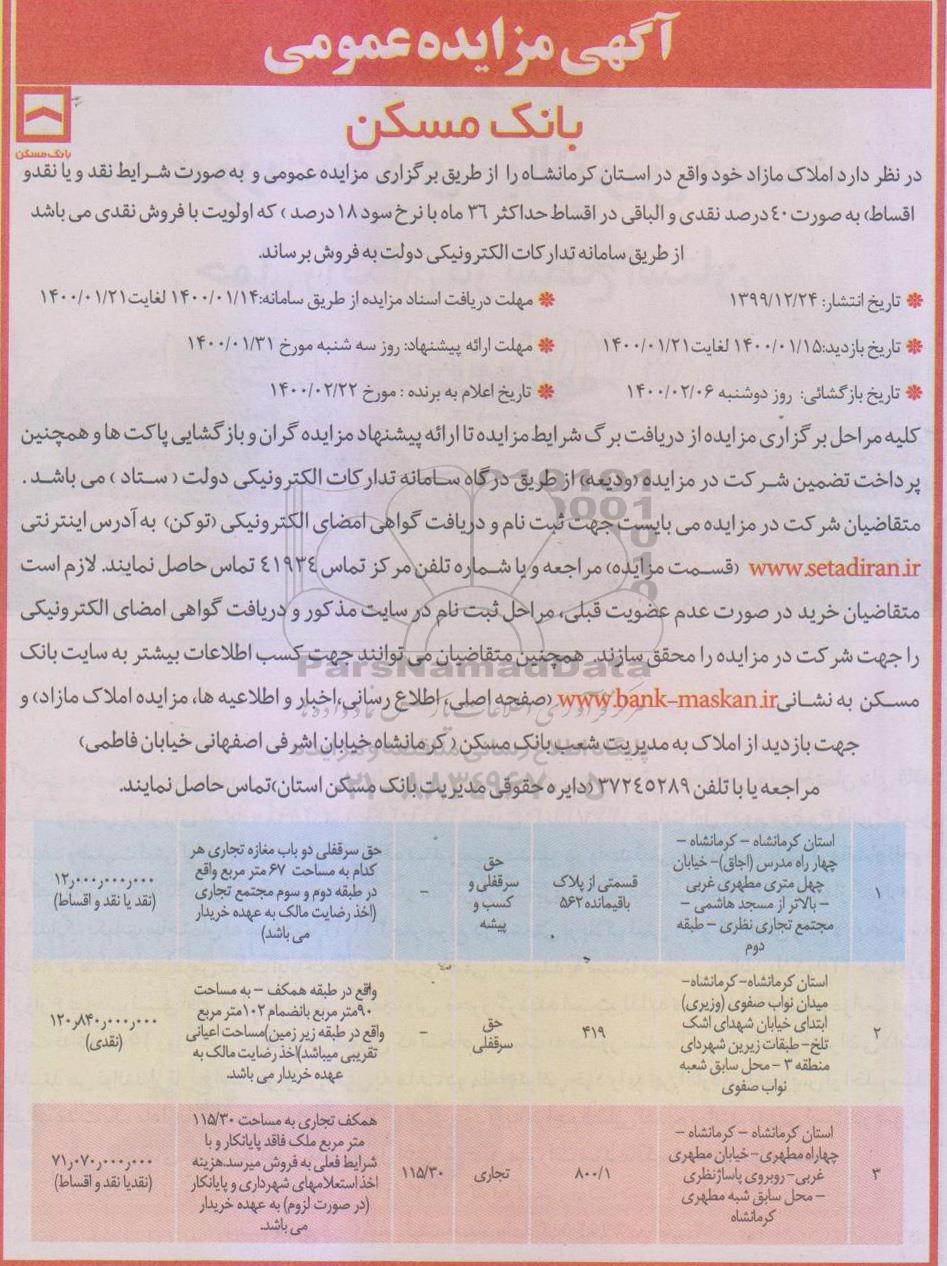 آگهی مزایده عمومی
بانک مسکن
بانک مسکن
در نظر دارد املاک مازاد خود واقع در استان کرمانشاه را از طریق برگزاری مزایده عمومی و به صورت شرایط نقد و یا نقدو
اقساط) به صورت ۴۰ درصد نقدی و الباقی در اقساط حداکثر ۳۶ ماه با نرخ سود ۱۸ درصد ) که اولویت با فروش نقدی می باشد
از طریق سامانه تدارکات الکترونیکی دولت به فروش برساند.
* تاریخ انتشار: ۱۳۹۹/۱۲/۲۴
* مهلت دریافت اسناد مزایده از طریق سامانه:۱۴۰۰/۰۱/۱۴ لغایت۱۴۰۰/۰۱/۲۱
* تاریخ بازدید:۱۴۰۰/۰۱/۱۵ لغایت۱۴۰۰/۰۱/۲۱
* مهلت ارائه پیشنهاد: روز سه شنبه مورخ ۱۴۰۰/۰۱/۳۱
* تاریخ بازگشائی: روز دوشنبه ۱۴۰۰/۰۲/۰۶
* تاریخ اعلام به برنده : مورخ ۱۴۰۰/۰۲/۲۲
کلیه مراحل برگزاری مزایده از دریافت برگ شرایط مزایده تا ارائه پیشنهاد مزایده گران و بازگشایی پاکت ها و همچنین
پرداخت تضمین شرکت در مزایده (ودیعه) از طریق درگاه سامانه تدارکات الکترونیکی دولت ( ستاد ) می باشد .
متقاضیان شرکت در مزایده می بایست جهت ثبت نام و دریافت گواهی امضای الکترونیکی (توکن) به آدرس اینترنتی
www.setadiran.ir (قسمت مزایده) مراجعه و یا شماره تلفن مرکز تماس ۴۱۹۳۴ تماس حاصل نمایند. لازم است
متقاضیان خرید در صورت عدم عضویت قبلی، مراحل ثبت نام در سایت مذکور و دریافت گواهی امضای الکترونیکی
را جهت شرکت در مزایده را محقق سازند. همچنین متقاضیان می توانند جهت کسب اطلاعات بیشتر به سایت بانک
مسکن به نشانی www.bank-maskan.ir (صفحه اصلی، اطلاع رسانی،اخبار و اطلاعیه ها، مزایده املاک مازاد) و
جهت بازدید از املاک به مدیریت شعب بانک مسکن ( کرمانشاه خیابان اشرفی اصفهانی خیابان فاطمی)
مراجعه یا با تلفن ۳۷۲۴۵۲۸۹ (دایره حقوقی مدیریت بانک مسکن استان)تماس حاصل نمایند.
ParsNamadData
۱
استان کرمانشاه – کرمانشاه –
چهار راه مدرس (اجاق)– خیابان
چهل متری مطهری غربی
– بالاتر از مسجد هاشمی –
مجتمع تجاری نظری – طبقه
دوم
قسمتی از پلاک
باقیمانده ۵۶۲
حق
سرقفلی و
کسب و
پیشه
–
حق سرقفلی دو باب مغازه تجاری هر
کدام به مساحت ۶۷ متر مربع واقع
در طبقه دوم و سوم مجتمع تجاری
(اخذ رضایت مالک به عهده خریدار
می باشد)
۱۲٫۰۰۰٫۰۰۰٫۰۰۰
(نقد یا نقد و اقساط)
۲
استان کرمانشاه– کرمانشاه–
میدان نواب صفوی (وزیری)
ابتدای خیابان شهدای اشک
تلخ– طبقات زیرین شهردای
منطقه ۳ – محل سابق شعبه
نواب صفوی
۴۱۹
حق
سرقفلی
–
واقع در طبقه همکف – به مساحت
۹۰متر مربع بانضمام ۱۰۲متر مربع
واقع در طبقه زیر زمین)مساحت اعیانی
تقریبی میباشد)اخذ رضایت مالک به
عهده خریدار می باشد.
۱۲۰٫۸۴۰٫۰۰۰٫۰۰۰
(نقدی)
۳
استان کرمانشاه – کرمانشاه –
چهاراه مطهری–خیابان مطهری
غربی– روبروی پاساژنظری
– محل سابق شبه مطهری
کرمانشاه
۸۰۰/۱
تجاری
۱۱۵/۳۰
همکف تجاری به مساحت ۱۱۵/۳۰
متر مربع ملک فاقد پایانکار و با
شرایط فعلی به فروش میرسد.هزینه
اخذ استعلامهای شهرداری و پایانکار
(در صورت لزوم) به عهده خریدار
می باشد.
۷۱٫۰۷۰٫۰۰۰٫۰۰۰
(نقدیا نقد و اقساط)